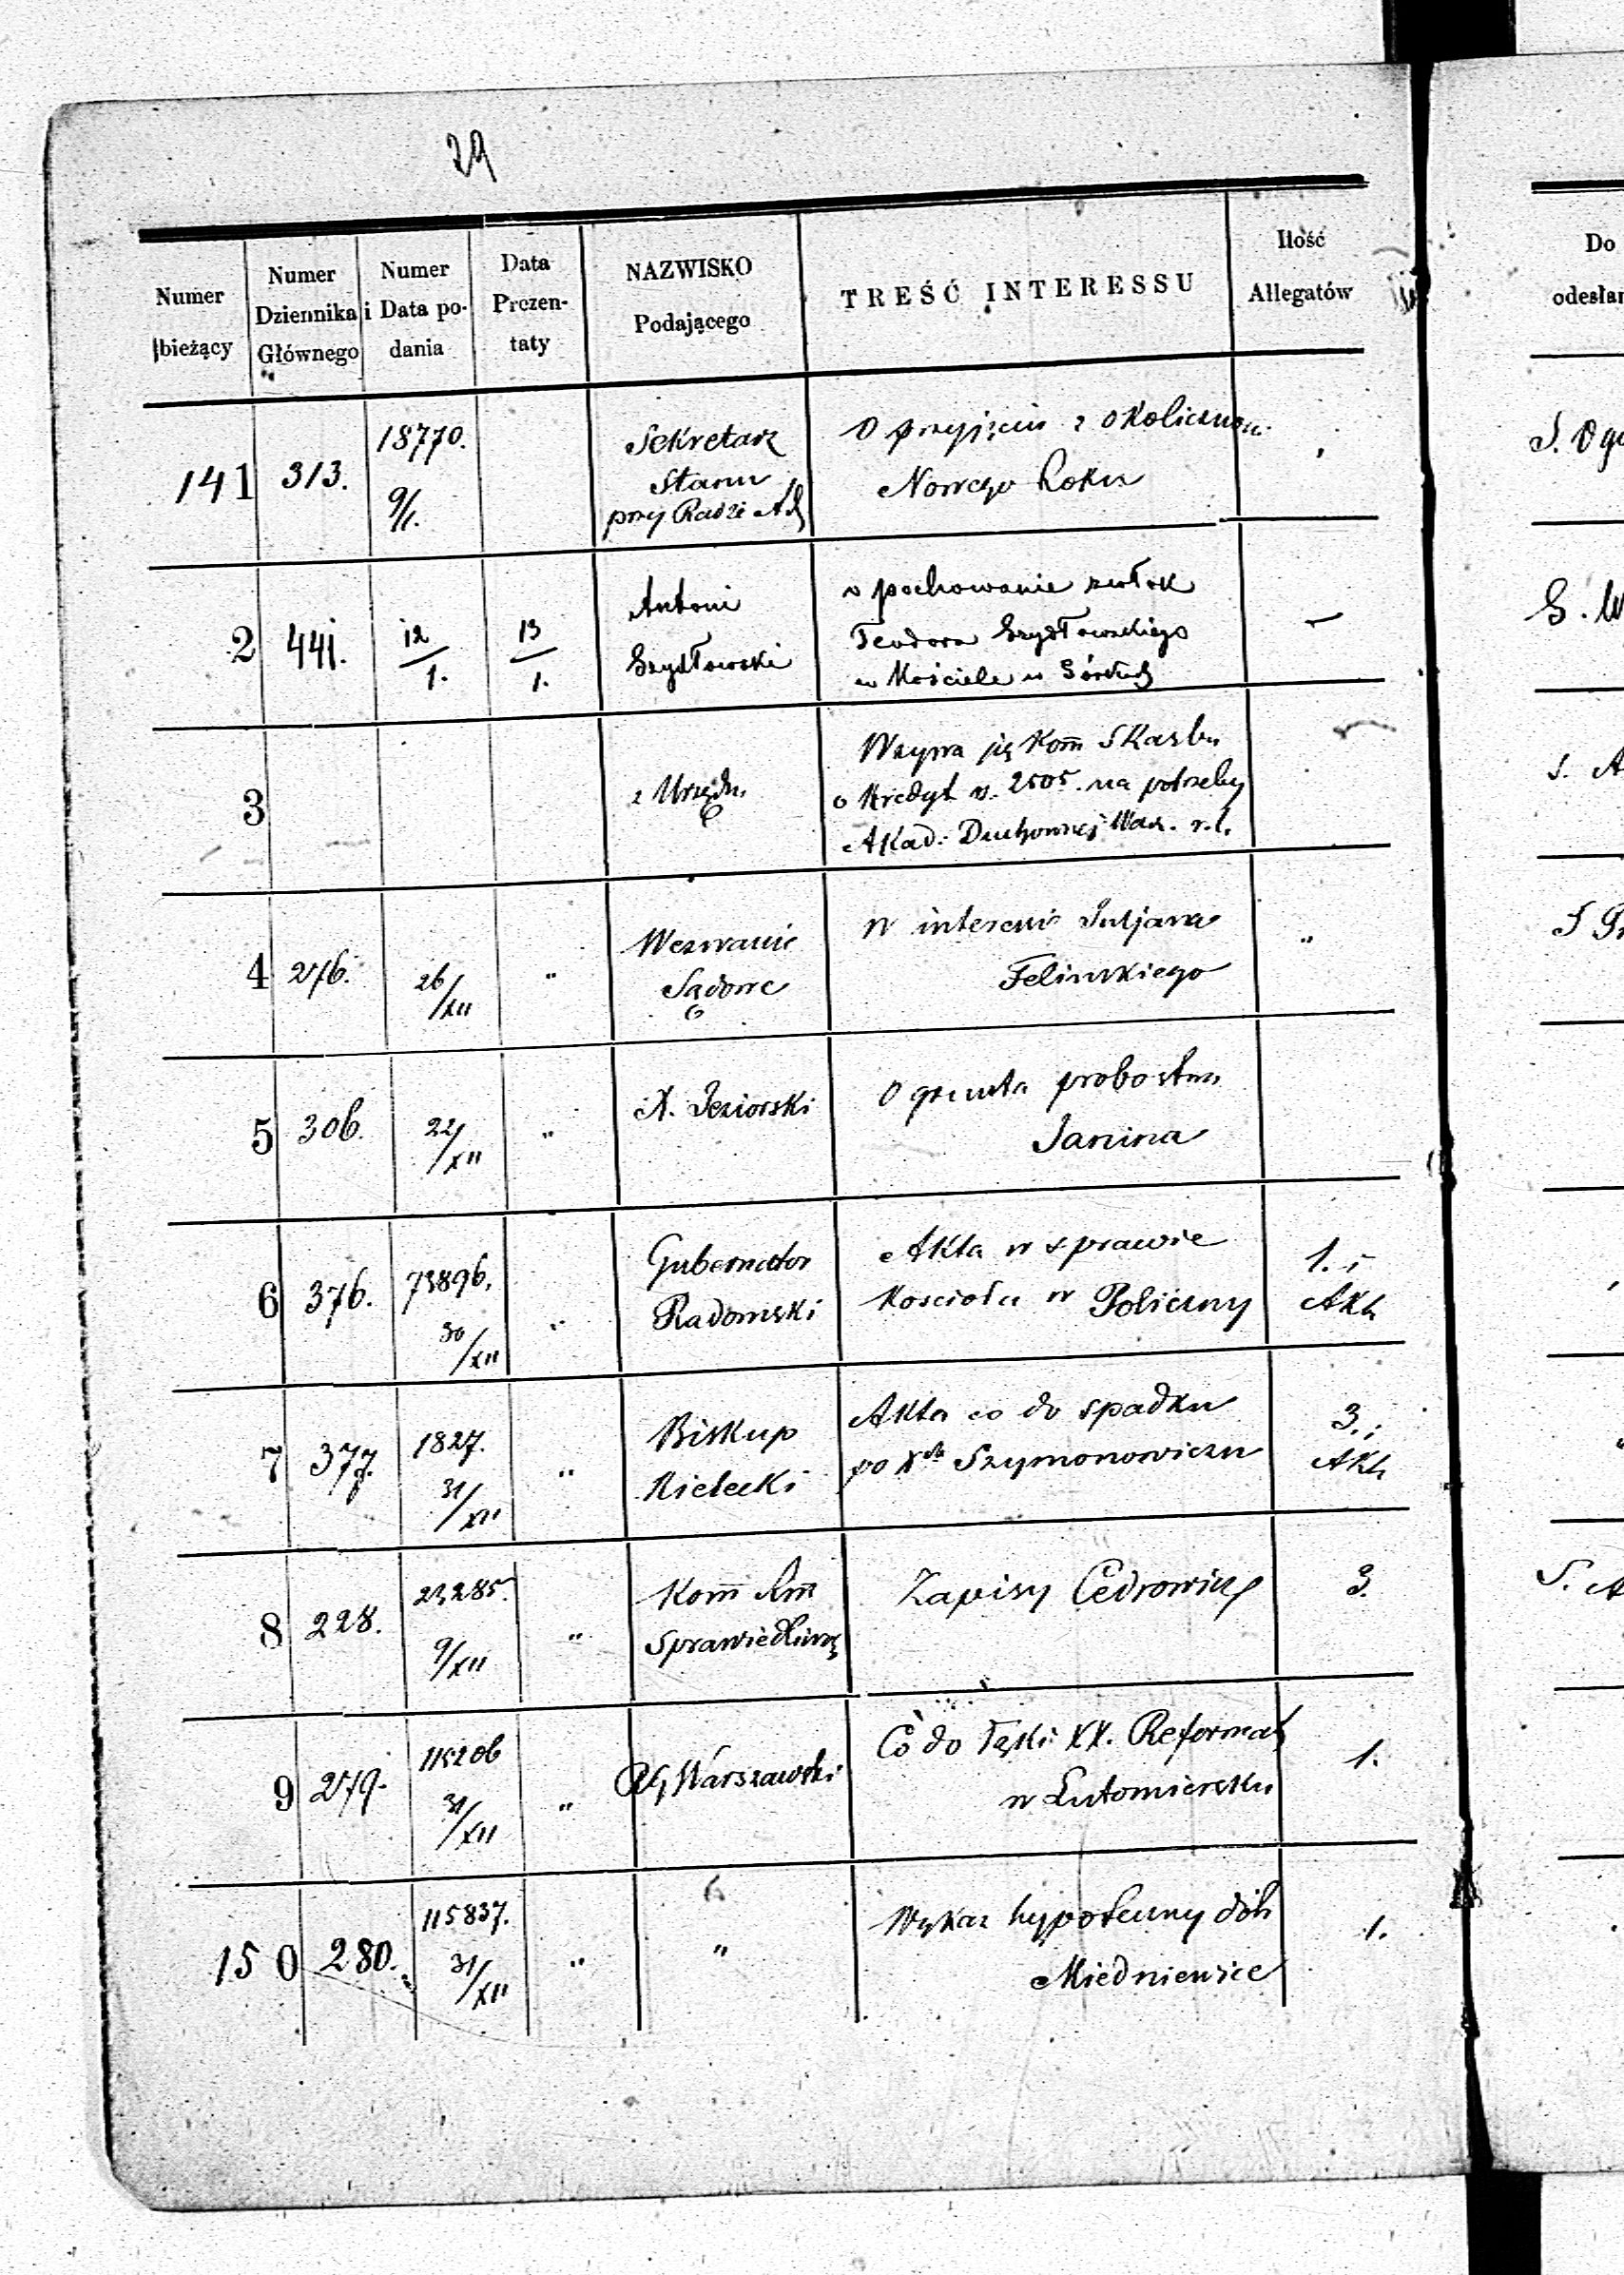 29
Numer bieżący
Numer Dziennika Głównego
Numer i Data podania
Data Prezentaty
NAZWISKO Podającego
TREŚĆ INTERESSU
Ilość Allegatów
Do
odesłan
141 313. 18770. 9/1. Sekretarz O przyjęciu z okoliczno
Stanu Nowego Roku
przy Radzie
2 441. 12/1. 13/1. Antoni o pochowanie zwłok —
Szydłowski Teodora Szydłowskiego
w Kościele w
3 z Urzędu Wzywa się Kom Skarbu
o Kredyt rs. 2505. na potrzeby
Akad: Duchownej Warsz. r. l.
4 276. 26/XII " Wezwanie W interesie Juljana "
Sądowe Felińskiego
5 306. 22/XII " X. Jeziorski O grunta probostwa
Janina
6 376. 73896. 30/XII " Gubernator Akta w sprawie 1. i
Radomski Kościoła w Policzny Akta
7 377. 1827. 31/XII " Biskup Akta co do spadku 3. i
Kielecki po Xdzu Szymonowiczu Akta
8 228. 23285. 9/XII " Kom Rzą Zapisy Cedrowicz 3.
Sprawiedliwoś
9 279. 115206 31/XII " RG Warszawski Co do łąki XX. Reformat 1.
w Lutomiersku
150 280. 115837. 31/XII " " Wykaz hypoteczny dób 1.
Miedniewice